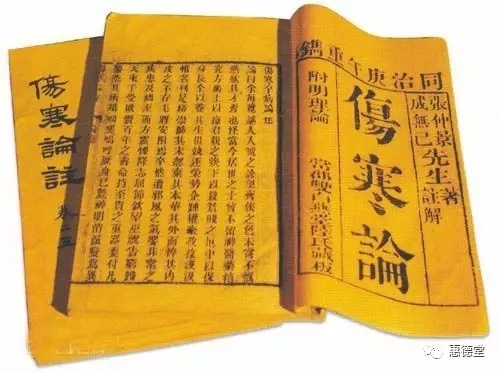 同治庚午重鐫
張仲景先生著
成無己先生註解
傷寒論
附明理論 常郡雙白燕堂陸氏藏板
傷寒卒病論集
論曰余每覽越人入虢之診望齊侯之色未嘗不慨
然歎其才秀也怪當今居世之士曾不留神醫藥精
究方術上以療君親之疾下以救貧賤之厄中以保
身長全以養其生但競逐榮勢企踵權豪孜孜汲汲
惟名利是務崇飾其末忽棄其本華其外而悴其內
皮之不存毛將安附焉卒然遭邪風之氣嬰非常之
疾患及禍至而方震慄降志屈節欽望巫祝告窮歸
天束手受敗賫百年之壽命持至貴之重器委付凡
醫恣其所措咄嗟嗚呼厥身已斃神明消滅變為異
傷寒論註
惠德堂